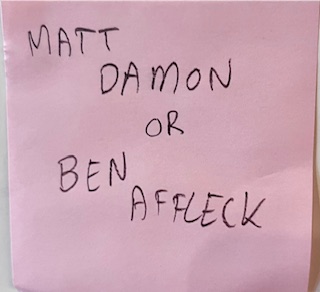 MATT
DAMON
OR
BEN
AFFLECK